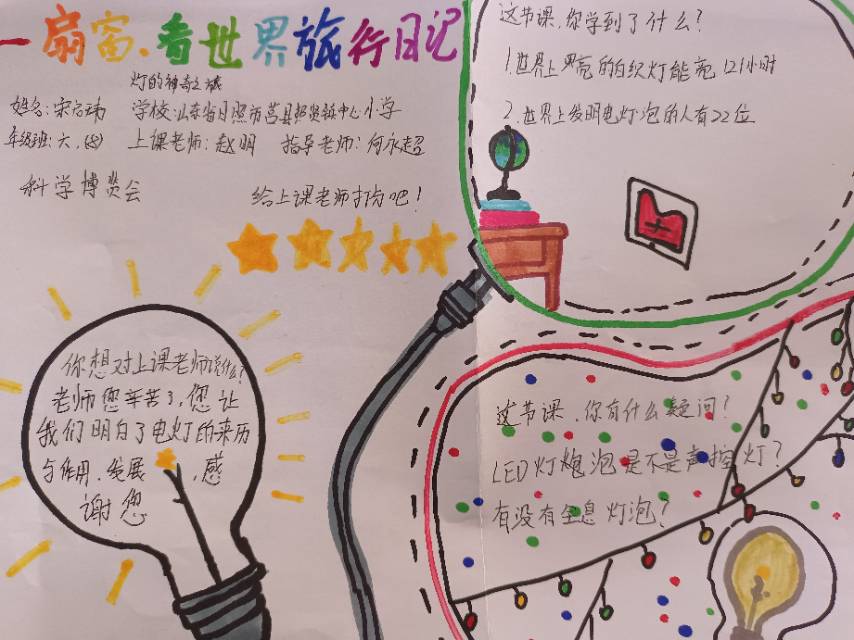 一扇窗,看世界旅行日记
灯的神奇之城
姓名:宋 学校:山东省日照市莒县招贤镇中心小学
年级班:六.(8) 上课老师:赵明 指导老师:何永超
科学博览会
给上课老师打分吧!
你想对上课老师说什么?
老师您辛苦了,您让
我们明白了电灯的来历
与作用、发展,感
谢您
这节课,你学到了什么?
1.世界上 的白炽灯能亮121小时
2.世界上发明电灯泡的人有22位
这节课,你有什么疑问?
LED灯炮泡是不是声控灯?
有没有全息灯泡?